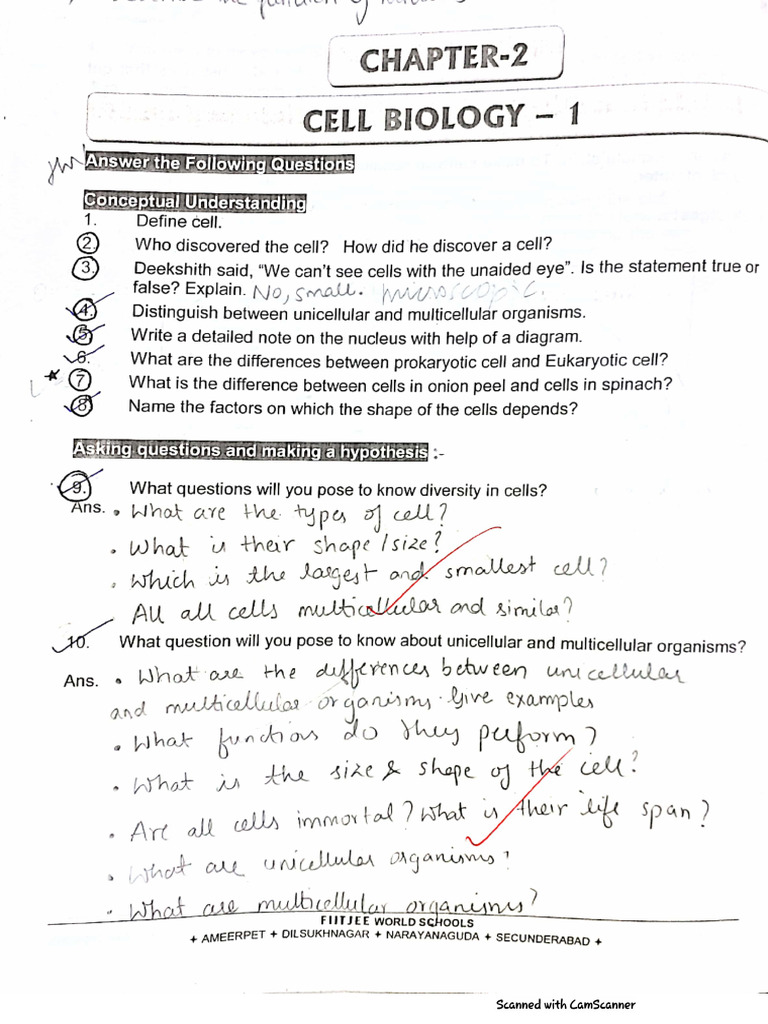 CHAPTER-2
CELL BIOLOGY – 1
Answer the Following Questions
Conceptual Understanding
1. Define cell.
2. Who discovered the cell? How did he discover a cell?
3. Deekshith said, “We can’t see cells with the unaided eye”. Is the statement true or
false? Explain. No, small. microscopic.
4. Distinguish between unicellular and multicellular organisms.
5. Write a detailed note on the nucleus with help of a diagram.
6. What are the differences between prokaryotic cell and Eukaryotic cell?
7 What is the difference between cells in onion peel and cells in spinach?
8 Name the factors on which the shape of the cells depends?
Asking questions and making a hypothesis :-
9. What questions will you pose to know diversity in cells?
Ans. • What are the types of cell?
• What is their shape/size?
• Which is the largest and smallest cell?
All all cells multicellular and similar?
10. What question will you pose to know about unicellular and multicellular organisms?
Ans. • What are the differences between unicellular
and multicellular organisms. Give examples
• What functions do they perform?
• What is the size & shape of the cell?
• Are all cells immortal? What is their life span?
• What are unicellular organisms?
• What are multicellular organisms?
FIITJEE WORLD SCHOOLS
+ AMEERPET + DILSUKHNAGAR + NARAYANAGUDA + SECUNDERABAD +
Scanned with CamScanner